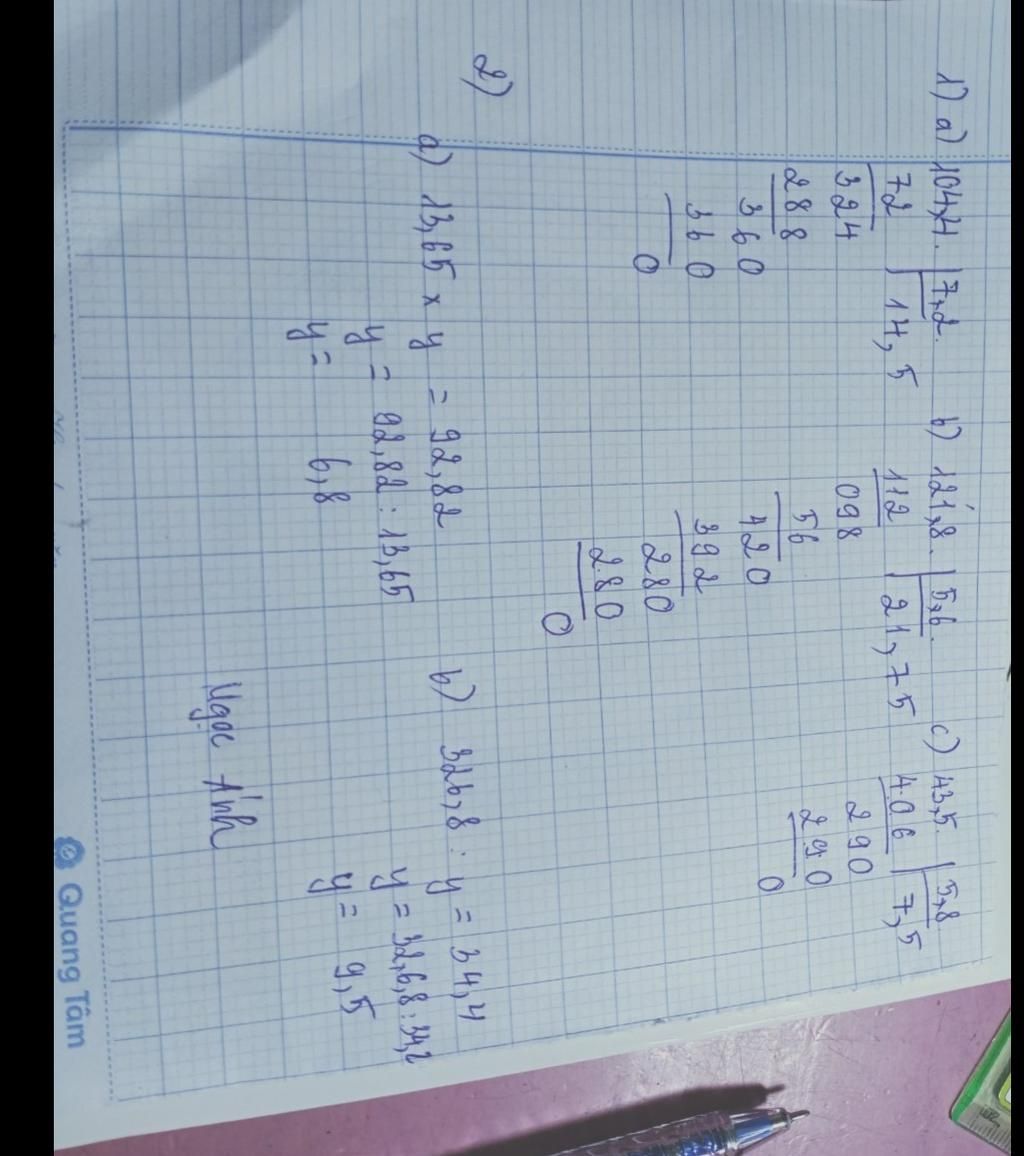 1) a) 104,4. | 7,2.
72 | 14,5
324
288
360
360
0
b) 121,8. | 5,6.
112 | 21,75
098
56
420
392
280
280
0
c) 43,5. | 5,8
406 | 7,5
290
290
0
2)
a) 13,65 x y = 92,82
y = 92,82 : 13,65
y = 6,8
b) 326,8 : y = 34,4
y = 32,6,8 : 34,2
y = 9,5
Ngọc Ánh
Quang Tâm